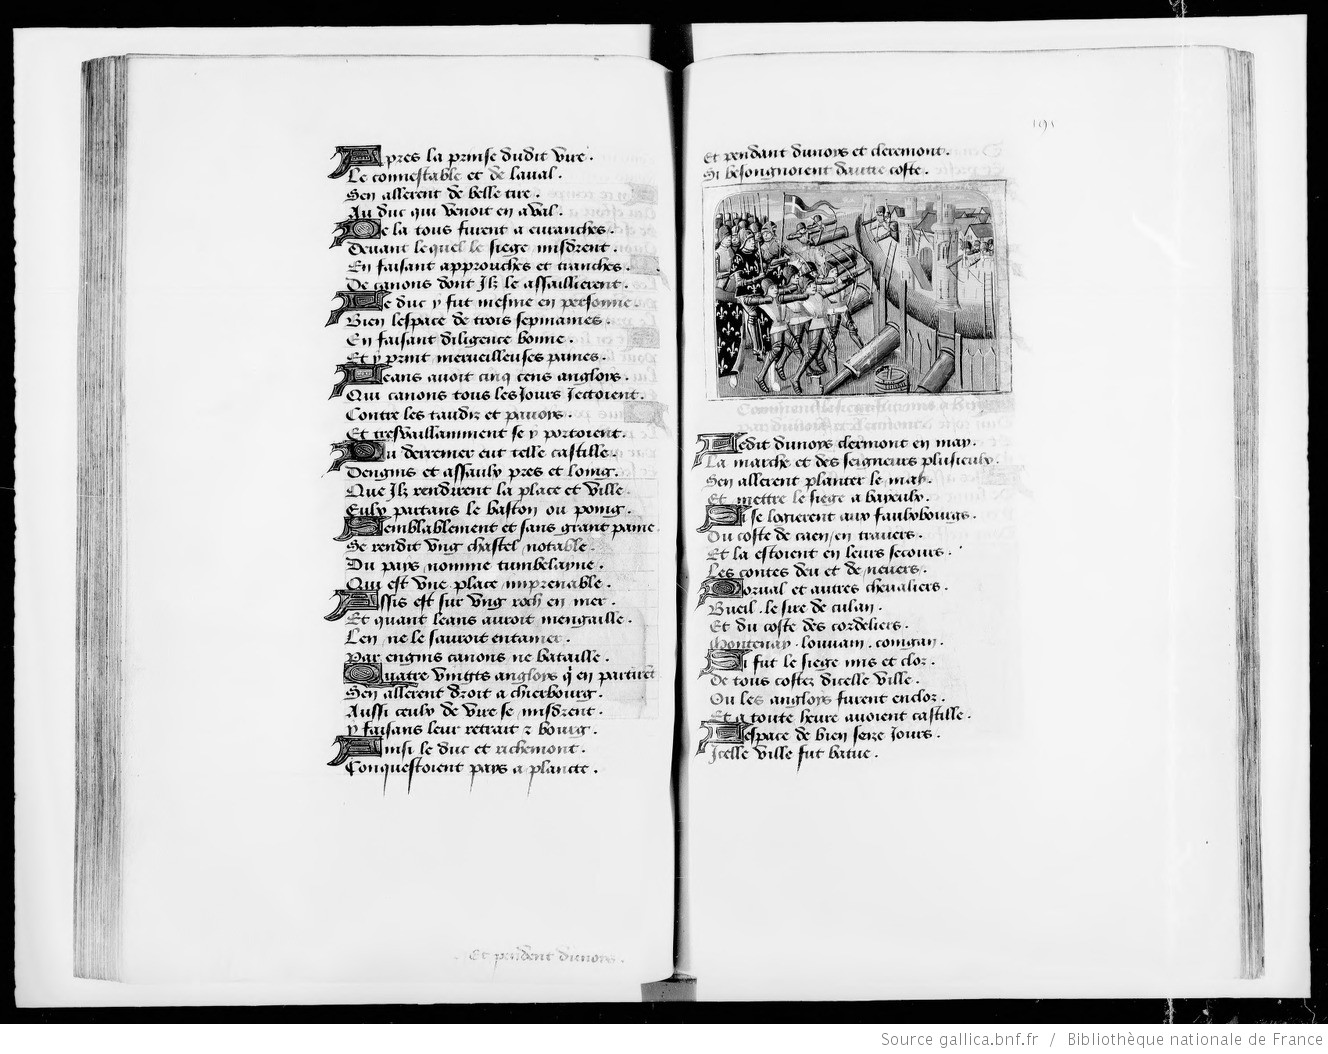 Apres la prinse dudit vire.
Le connestable et de laval.
Sen allerent de belle tire.
Au duc qui venoit en aval.
De la tous furent a evranches.
Devant lequel le siege misdrent.
En faisant approuches et tranches.
De canons dont Ilz le assaillierent.
Le duc y fut mesme en personne.
Bien lespace de trois sepmaines.
En faisant diligence bonne.
Et y print merveilleuses paines.
Leans avoit cinq cens angloys.
Qui canons tous les Jours Jectoient.
Contre les taudiz et pavoys.
Et tresvaillamment se y portoient.
Du derrenier eut telle castille.
Dengins et assaulx pres et loing.
Que Ilz rendirent la place et ville.
Eulx partans le baston ou poing.
Semblablement et sans grant paine.
Se rendit ung chastel notable.
Du pays nomme tumbelayne.
Qui est une place imprenable.
Assis est sur ung roch en mer.
Et quant leans auroit mengaille.
Len ne le sauroit entamer.
Par engins canons ne bataille.
Quatre vingts angloys q̃ en partirẽt
Sen allerent droit a chierbourg.
Aussi ceulx de vire se misdrent.
y faisans leur retrait z bourg.
Ainsi le duc et richemont.
Conquestoient pays a plancte.
Et pendent dunoys.
191
Et pendant dunoys et cleremont.
Si besongnoient dautre coste.
Ledit dunoys clermont en may.
La marche et des seigneurs plusieulx.
Sen allerent planter le may.
Et mettre le siege a bayeulx.
Si se logierent aux faulxbourgs.
Du coste de caen en travers.
Et la estoient en leurs secours.
Les contes deu et de nevers.
Dorval et autres chevaliers.
Bueil. le sire de culan.
Et du coste des cordeliers.
Montenay. louvain. conigan.
Si fut le siege mis et cloz.
De tous costez dicelle ville.
Ou les angloys furent encloz.
Et a toute heure avoient castille.
Lespace de bien seize Jours.
Icelle ville fut batue.
Source gallica.bnf.fr / Bibliothèque nationale de France